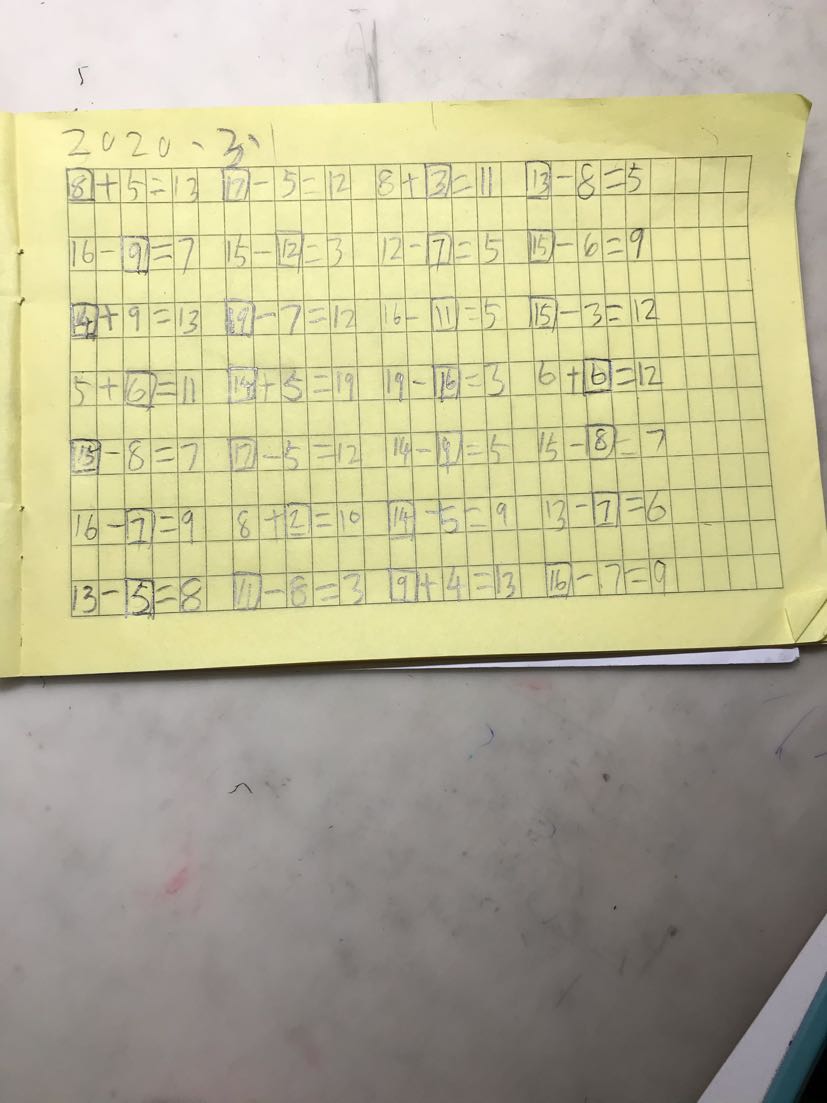 2020、3、1
8+5=13 17-5=12 8+3=11 13-8=5
16-9=7 15-12=3 12-7=5 15-6=9
4+9=13 19-7=12 16-11=5 15-3=12
5+6=11 14+5=19 19-16=3 6+6=12
15-8=7 17-5=12 14-9=5 15-8=7
16-7=9 8+2=10 14-5=9 13-7=6
13-5=8 11-8=3 9+4=13 16-7=9